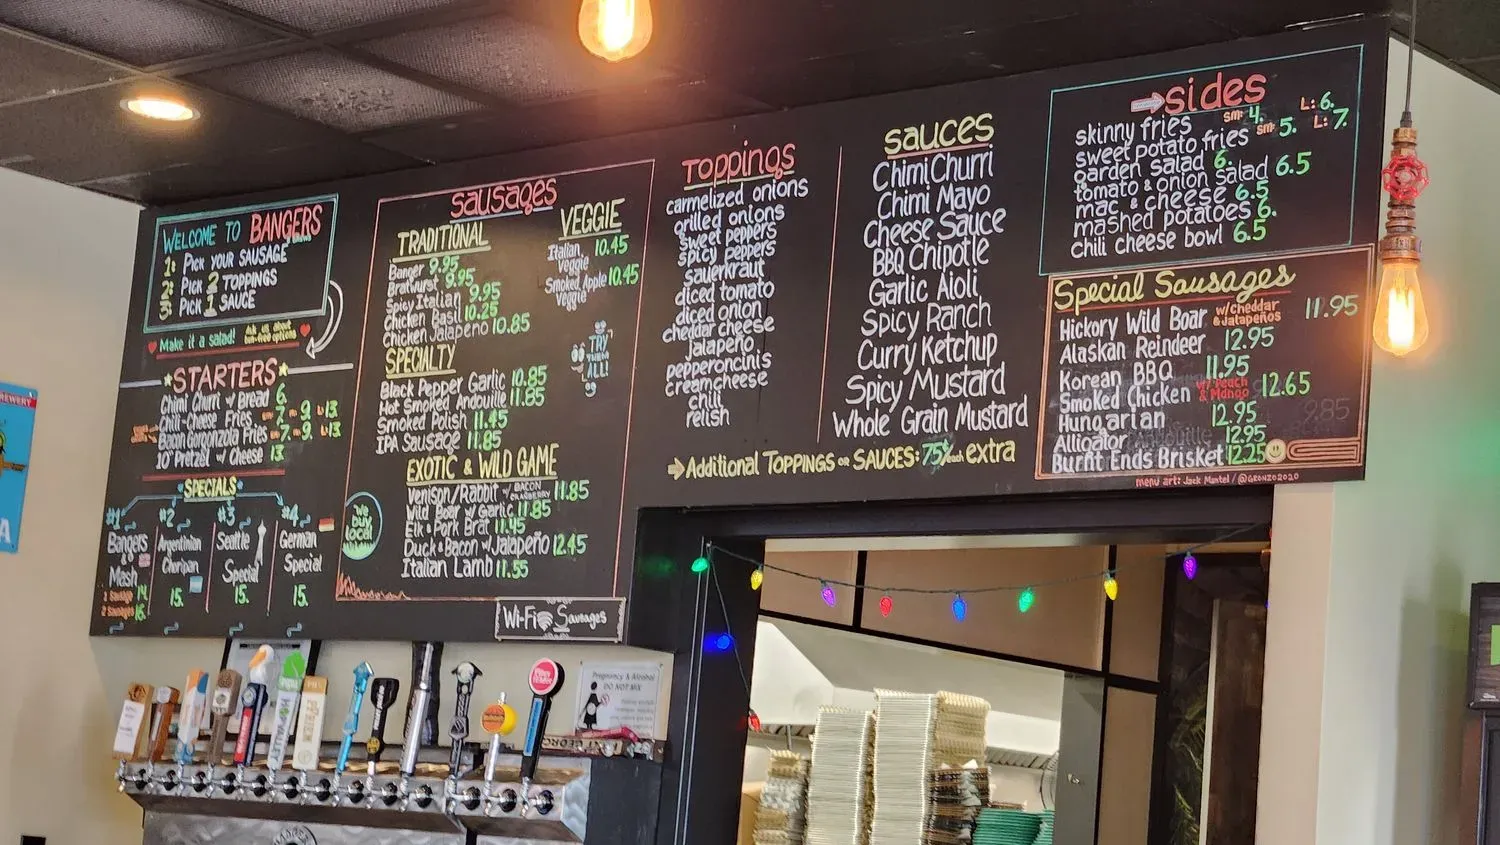 WELCOME TO BANGERS
1: PICK YOUR SAUSAGE
2: PICK 2 TOPPINGS
3: PICK 1 SAUCE
Make it a salad!
Ask us about
bun-free options
STARTERS
Chimi Churri w/ Bread 6.
Chili-Cheese Fries 7. 9. L: 13.
Bacon Gorgonzola Fries 7. 9. L: 13.
10" Pretzel w/ Cheese 13
SPECIALS
#1
Bangers
&
Mash
1 Sausage 14.
2 Sausages 18.
#2
Argentinian
Choripan
15.
#3
Seattle
Special
15.
#4
German
Special
15.
We
buy
local
SAUSAGES
TRADITIONAL
Banger 9.95
Bratwurst 9.95
Spicy Italian 9.95
Chicken Basil 10.25
Chicken Jalapeño 10.85
VEGGIE
Italian Veggie 10.45
Smoked Apple Veggie 10.45
TRY
THEM
ALL!
SPECIALTY
Black Pepper Garlic 10.85
Hot Smoked Andouille 11.85
Smoked Polish 11.45
IPA Sausage 11.85
EXOTIC & WILD GAME
Venison/Rabbit w/ BACON CRANBERRY 11.85
Wild Boar w/ Garlic 11.85
Elk & Pork Brat 11.45
Duck & Bacon w/ Jalapeño 12.45
Italian Lamb 11.55
Wi-Fi Sausages
TOPPINGS
carmelized onions
grilled onions
sweet peppers
spicy peppers
sauerkraut
diced tomato
diced onion
cheddar cheese
jalapeño
pepperoncinis
creamcheese
chili
relish
SAUCES
Chimi Churri
Chimi Mayo
Cheese Sauce
BBQ Chipotle
Garlic Aioli
Spicy Ranch
Curry Ketchup
Spicy Mustard
Whole Grain Mustard
Additional TOPPINGS or SAUCES: 75¢ each extra
sides
skinny fries sm: 4. L: 6.
sweet potato fries sm: 5. L: 7.
garden salad 6.
tomato & onion salad 6.5
mac & cheese 6.5
mashed potatoes 6.
chili cheese bowl 6.5
Special Sausages
Hickory Wild Boar w/ Cheddar & Jalapeños 11.95
Alaskan Reindeer 12.95
Korean BBQ 11.95
Smoked Chicken w/ Peach & Mango 12.65
Hungarian 12.95
Alligator 12.95
Burnt Ends Brisket 12.25
menu art: Jack Mantel / @GRONZO2020
Pregnancy & Alcohol
DO NOT MIX